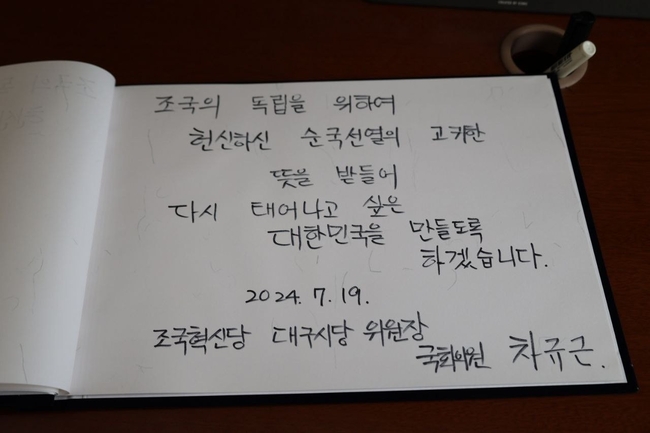 조국의 독립을 위하여
헌신하신 순국선열의 고귀한
뜻을 받들어
다시 태어나고 싶은
대한민국을 만들도록
하겠습니다.
2024. 7. 19.
조국혁신당 대구시당 위원장
국회의원 차규근.